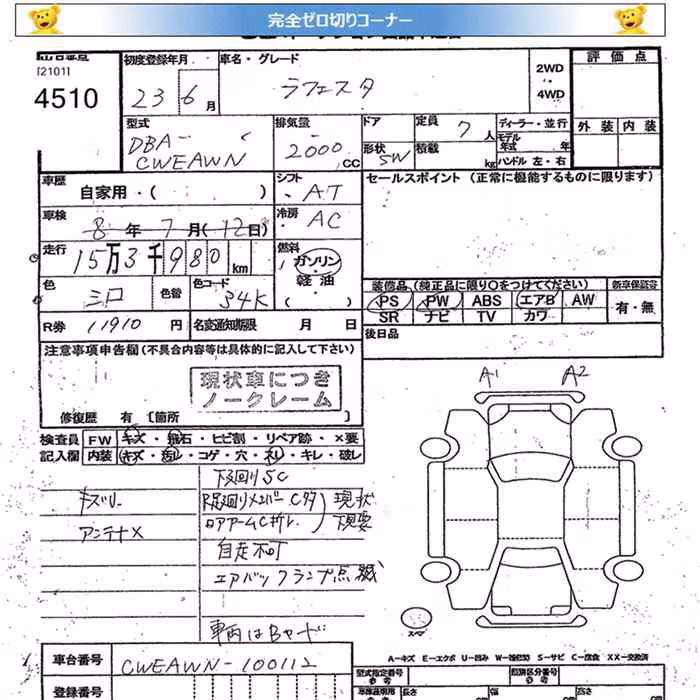 完全ゼロ切りコーナー
[2101]
4510
初度登録年月
23 6月
車名・グレード
ラフェスタ
2WD
4WD
評価点
外装 内装
型式
DBA-
CWEAWN
排気量
2000 CC
ドア
形状 SW
定員 7 人
積載 kg
ディーラー・並行
モデル
年式 年
ハンドル 左・右
車歴
自家用・( )
シフト
AT
セールスポイント (正常に機能するものに限ります)
車検
8年7月(12日)
冷房
AC
走行
15万3千980 km
燃料
ガソリン
軽油
( ・ )
色
シロ
色替
色コード
34K
装備品(純正品に限り○をつけてください)
新車保証書
PS PW ABS エアB AW
SR ナビ TV カワ
有・無
R券 11910 円
名変通知期限 月 日
後日品
注意事項申告欄(不具合内容等は具体的に記入して下さい)
現状車につき
ノークレーム
修復歴 有 [箇所
A1 A2
検査員
記入欄
FW キズ・飛石・ヒビ割・リペア跡・×要
内装 キズ・汚れ・コゲ・穴・ネレ・キレ・破レ
下廻りSC
キズU
アンテナX
現状
下見要
自走不可
エアバックランプ点滅
車両はBヤード
スペア
A-キズ E-エクボ U-凹み S-サビ C-腐食 XX-交換済
車台番号
CWEAWN-100112
登録番号
型式指定番号
参考
類別区分番号
参考
長さ 幅 高さ